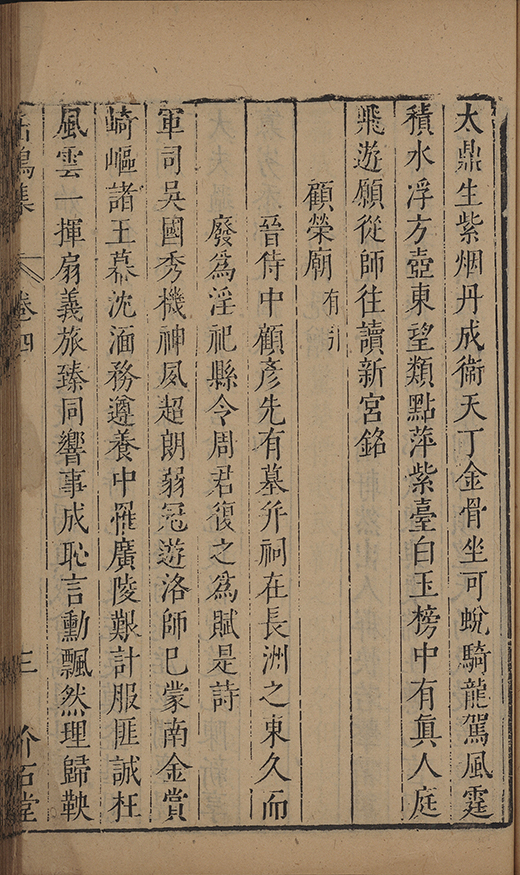 太鼎生紫烟丹成衞天丁金骨坐可蛻騎龍駕風霆
積水浮方壺東望類點萍紫臺白玉榜中有眞人庭
飛遊願從師往讀新宮銘
顧榮廟有引
晉侍中顧彥先有墓并祠在長洲之東久而
廢爲淫祀縣令周君復之爲賦是詩
軍司吳國秀機神夙超朗弱冠遊洛師已蒙南金賞
崎嶇諸王幕沈湎務遵養中罹廣陵艱計服匪誠枉
風雲一揮扇義旅臻同響事成恥言勳飄然理歸鞅
鳴集 卷四 三 介石堂